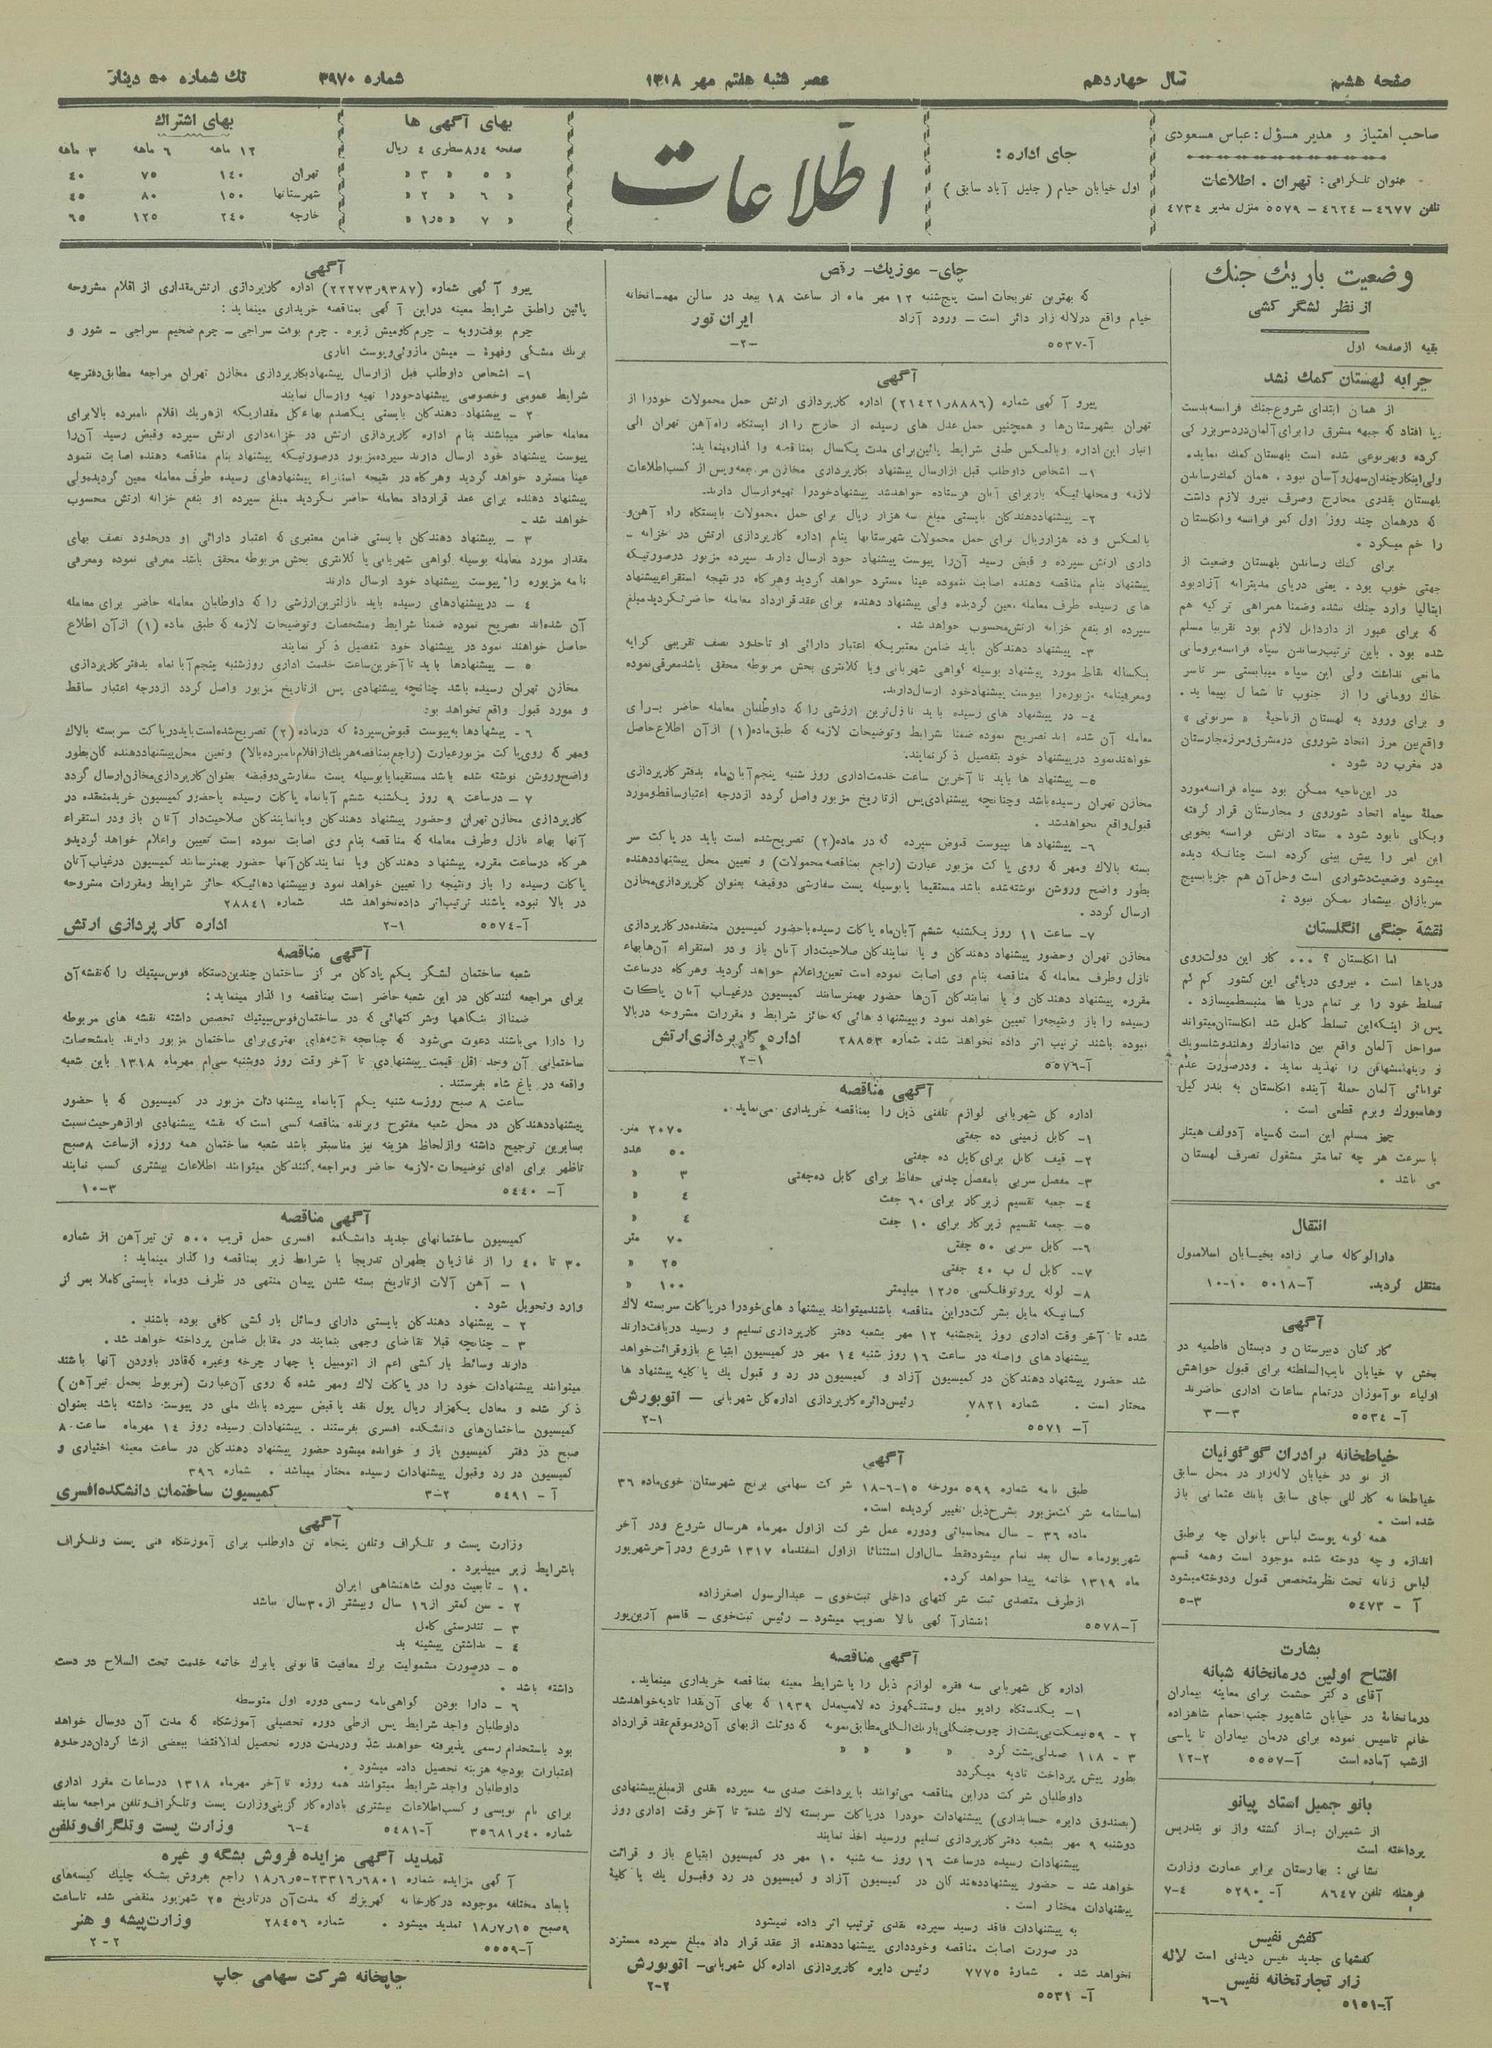 صفحه هشتم
سال چهاردهم
عصر شنبه هفتم مهر ۱۳۱۸
شماره ۳۹۷۰
تك شماره ۵۰ دینار
صاحب امتیاز و مدیر مسؤل: عباس مسعودی
عنوان تلگرافی: تهران . اطلاعات
تلفن ۴۶۷۷ – ۴۶۲۴ – ۵۵۷۹ منزل مدیر ۴۷۳۴
جای اداره:
اول خیابان خیام ( جلیل آباد سابق )
اطلاعات
بهای آگهی ها
صفحه ۴ و ۸ سطری ۴ ریال
» ۵ » ۳ »
» ۶ » ۲ »
» ۷ » ۱٫۵ »
بهای اشتراك
۱۲ ماهه ۶ ماهه ۳ ماهه
تهران ۱۴۰ ۷۵ ۴۰
شهرستانها ۱۵۰ ۸۰ ۴۵
خارجه ۲۴۰ ۱۲۵ ۶۵
وضعیت باریك جنك
از نظر لشگر کشی
بقیه از صفحه اول
چرا به لهستان کمك نشد
از همان ابتدای شروع جنك فرانسه بدست
کرده و بهر نوعی شده است بلهستان کمك نماید.
ولی اینکار چندان سهل و آسان نبود . همان کمك رساندن
بلهستان بقدری مخارج وصرف نیرو لازم داشت
که در همان چند روز اول کمر فرانسه وانگلستان
را خم میکرد .
برای کمك رساندن بلهستان وضعیت از
جهتی خوب بود . یعنی دریای مدیترانه آزاد بود
ایتالیا وارد جنك نشده وضمنا همراهی ترکیه هم
که برای عبور از داردانل لازم بود تقریبا مسلم
شده بود . باین ترتیب رساندن سپاه فرانسه برومانی
مانعی نداشت ولی این سپاه میبایستی سر تاسر
خاك رومانی را از جنوب تا شمال بپیماید .
و برای ورود به لهستان از ناحیهٔ « سرنوتی »
واقع بین مرز اتحاد شوروی در مشرق و مرز مجارستان
در مغرب رد شود .
در این ناحیه ممکن بود سپاه فرانسه مورد
حملهٔ سپاه اتحاد شوروی و مجارستان قرار گرفته
وبکلی نابود شود . ستاد ارتش فرانسه بخوبی
این امر را پیش بینی کرده است چنانکه دیده
میشود وضعیت دشواری است وحل آن هم جز با بسیج
سربازان بیشمار ممکن نبود .
نقشهٔ جنگی انگلستان
اما انگلستان ؟ ... کار این دولت روی
دریاها است . نیروی دریائی این کشور کم کم
تسلط خود را بر تمام دریا ها منبسط میسازد .
پس از اینکه این تسلط کامل شد انگلستان میتواند
سواحل آلمان واقع بین دانمارك وهلند وشلسویك
و ویلهلمسهافن را تهدید نماید . ودر صورت عدم
توانائی آلمان حملهٔ آینده انگلستان به بندر کیل
وهامبورك وبرم قطعی است .
چیز مسلم این است که سپاه آدولف هیتلر
با سرعت هر چه تمامتر مشغول تصرف لهستان
می باشد .
انتقال
دارالوکاله صابر زاده بخیابان اسلامبول
منتقل گردید. آ-۵۰۱۸ ۱۰-۱۰
آگهی
کارکنان دبیرستان و دبستان فاطمیه در
بخش ۷ خیابان نایب السلطنه برای قبول خواهش
اولیاء نوآموزان در تمام ساعات اداری حاضرند
آ-۵۵۳۴ ۳-۳
خیاطخانه برادران گوگونیان
از نو در خیابان لاله زار در محل سابق
خیاطخانه کارللی جای سابق بانك عثمانی باز
شده است .
همه گونه پوست لباس بانوان چه بر طبق
اندازه و چه دوخته شده موجود است وهمه قسم
لباس زنانه تحت نظر متخصص قبول ودوخته میشود
آ – ۵۴۷۳ ۳-۵
بشارت
افتتاح اولین درمانخانه شبانه
آقای دکتر حشمت برای معاینه بیماران
درمانخانهٔ در خیابان شاهپور جنب حمام شاهزاده
خانم تاسیس نموده برای درمان بیماران تا پاسی
از شب آماده است آ-۵۵۵۷ ۲-۱۲
بانو جمیل استاد پیانو
از شمیران باز گشته واز نو بتدریس
پرداخته است
نشانی : بهارستان برابر عمارت وزارت
فرهنك تلفن ۸۶۴۷ آ-۵۲۹۰ ۴-۷
کفش نفیس
کفشهای جدید نفیس دیدنی است لاله
زار تجارتخانه نفیس
آ-۵۱۵۱ ۶-۶
چای- موزیك- رقص
که بهترین تفریحات است پنجشنبه ۱۲ مهر ماه از ساعت ۱۸ ببعد در سالن مهمانخانه
خیام واقع در لاله زار دائر است – ورود آزاد ایران تور
آ-۵۵۳۷ -۲-
آگهی
پیرو آگهی شماره (۲۱۴۲۱٫۸۸۸۶) اداره کارپردازی ارتش حمل محمولات خود را از
تهران بشهرستان ها و همچنین حمل عدل های رسیده از خارج را از ایستگاه راه آهن تهران الی
انبار این اداره وبالعکس طبق شرایط پائین برای مدت یکسال بمناقصه واگذار مینماید:
۱- اشخاص داوطلب قبل از ارسال پیشنهاد بکارپردازی مخازن مراجعه و پس از کسب اطلاعات
لازمه و محلهائیکه بار برای آنان فرستاده خواهد شد پیشنهاد خود را تهیه و ارسال دارند.
۲- پیشنهاد دهندگان بایستی مبلغ سه هزار ریال برای حمل محمولات بایستگاه راه آهن و
بالعکس و ده هزار ریال برای حمل محمولات شهرستانها بنام اداره کارپردازی ارتش در خزانه –
داری ارتش سپرده و قبض رسید آن را پیوست پیشنهاد خود ارسال دارند سپرده مزبور در صورتیکه
پیشنهاد بنام مناقصه دهنده اصابت ننموده عینا مسترد خواهد گردید وهرگاه در نتیجه استقراء پیشنهاد
های رسیده طرف معامله معین گردیده ولی پیشنهاد دهنده برای عقد قرارداد معامله حاضر نگردید مبلغ
سپرده او بنفع خزانه ارتش محسوب خواهد شد .
۳- پیشنهاد دهندگان باید ضامن معتبریکه اعتبار دارائی او تا حدود نصف تقریبی کرایه
یکساله نقاط مورد پیشنهاد بوسیله گواهی شهربانی ویا کلانتری بخش مربوطه محقق باشد معرفی نموده
ومعرفینامه مزبوره را پیوست پیشنهاد خود ارسال دارند.
۴- در پیشنهاد های رسیده باید نازل ترین ارزشی را که داوطلبان معامله حاضر برای
معامله آن شده اند تصریح نموده ضمنا شرایط و توضیحات لازمه که طبق ماده (۱) از آن اطلاع حاصل
خواهند نمود در پیشنهاد خود بتفصیل ذکر نمایند.
۵- پیشنهاد ها باید تا آخرین ساعت خدمت اداری روز شنبه پنجم آبان ماه بدفتر کارپردازی
مخازن تهران رسیده باشد وچنانچه پیشنهادی پس از تاریخ مزبور واصل گردد از درجه اعتبار ساقط ومورد
قبول واقع نخواهد شد .
۶- پیشنهاد ها بپیوست قبوض سپرده که در ماده (۲) تصریح شده است باید در پاکت سر
بسته بالاك ومهر که روی پاکت مزبور عبارت (راجع بمناقصه محمولات) و تعیین محل پیشنهاد دهنده
بطور واضح وروشن نوشته شده باشد مستقیما یا بوسیله پست سفارشی دو قبضه بعنوان کارپردازی مخازن
ارسال گردد .
۷- ساعت ۱۱ روز یکشنبه ششم آبان ماه پاکات رسیده با حضور کمیسیون منعقده در کارپردازی
مخازن تهران وحضور پیشنهاد دهندگان و یا نمایندگان صلاحیت دار آنان باز و در استقراء آن ها بهاء
نازل وطرف معامله که مناقصه بنام وی اصابت نموده است تعیین واعلام خواهد گردید وهرگاه در ساعت
مقرره پیشنهاد دهندگان و یا نمایندگان آن ها حضور بهمنرسانند کمیسیون در غیاب آنان پاکات
رسیده را باز و نتیجه را تعیین خواهد نمود وبپیشنهاد هائی که حائز شرایط و مقررات مشروحه در بالا
نبوده باشند ترتیب اثر داده نخواهد شد. شماره ۲۸۸۵۳ اداره کارپردازی ارتش
آ-۵۵۷۶ ۱-۲
آگهی مناقصه
اداره کل شهربانی لوازم تلفنی ذیل را بمناقصه خریداری می نماید .
۱- کابل زمینی ده جفتی ۲۰۷۰ متر
۲- قیف کابل برای کابل ده جفتی ۵۰ عدد
۳- مفصل سربی با مفصل چدنی حفاظ برای کابل ده جفتی ۳ »
۴- جعبه تقسیم زیر کار برای ۶۰ جفت ۴ »
۵- جعبه تقسیم زیر کار برای ۱۰ جفت ۴ »
۶- کابل سربی ۵۰ جفتی ۷۰ متر
۷- کابل ل ب ۴۰ جفتی ۲۵ »
۸- لوله پروتوفلکسی ۱۲٫۵ میلیمتر ۱۰۰ »
کسانیکه مایل بشرکت در این مناقصه باشند میتوانند پیشنهاد های خود را در پاکات سربسته لاك
شده تا آخر وقت اداری روز پنجشنبه ۱۲ مهر بشعبه دفتر کارپردازی تسلیم و رسید دریافت دارند
پیشنهاد های واصله در ساعت ۱۶ روز شنبه ۱۴ مهر در کمیسیون ابتیاع باز وقرائت خواهد
شد حضور پیشنهاد دهندگان در کمیسیون آزاد و کمیسیون در رد و قبول یك یا کلیه پیشنهاد ها
مختار است . شماره ۷۸۲۱ رئیس دائره کارپردازی اداره کل شهربانی – اتوبورش
آ-۵۵۷۱ ۱-۲
آگهی
طبق نامه شماره ۵۹۹ مورخه ۱۵-۶-۱۸ شرکت سهامی برنج شهرستان خوی ماده ۳۶
اساسنامه شرکت مزبور بشرح ذیل تغییر گردیده است.
ماده ۳۶ – سال محاسباتی ودوره عمل شرکت از اول مهرماه هر سال شروع ودر آخر
شهریور ماه سال بعد تمام میشود فقط سال اول استثنائا از اول اسفندماه ۱۳۱۷ شروع ودر آخر شهریور
ماه ۱۳۱۹ خاتمه پیدا خواهد کرد.
از طرف متصدی ثبت شرکتهای داخلی ثبت خوی – عبدالرسول اصغرزاده
انتشار آگهی بالا تصویب میشود – رئیس ثبت خوی – قاسم آرین پور
آ-۵۵۷۸
آگهی مناقصه
اداره کل شهربانی سه فقره لوازم ذیل را با شرایط معینه بمناقصه خریداری مینماید.
۱- یکدستگاه رادیو مبل وستنگهوز ده لامپ مدل ۱۹۳۹ که بهای آن نقدا تادیه خواهد شد
۲ - ۵۹ نیمکت بی پشت از چوب جنگلی بارنك الکلی مطابق نمونه که دو ثلث از بهای آن در موقع عقد قرارداد
۳ - ۱۱۸ صندلی پشت گرد » » » »
بطور پیش پرداخت تادیه میگردد
داوطلبان شرکت در این مناقصه می توانند با پرداخت صدی سه سپرده نقدی از مبلغ پیشنهادی
(بصندوق دایره حسابداری) پیشنهادات خود را در پاکات سربسته لاك شده تا آخر وقت اداری روز
دوشنبه ۹ مهر بشعبه دفتر کارپردازی تسلیم ورسید اخذ نمایند
پیشنهادات رسیده در ساعت ۱۶ روز سه شنبه ۱۰ مهر در کمیسیون ابتیاع باز و قرائت
خواهد شد – حضور پیشنهاد دهندگان در کمیسیون آزاد و کمیسیون در رد وقبول یك یا کلیه
پیشنهادات مختار است .
به پیشنهادات فاقد رسید سپرده نقدی ترتیب اثر داده نمیشود
در صورت اصابت مناقصه وخودداری پیشنهاد دهنده از عقد قرار داد مبلغ سپرده مسترد
نخواهد شد . شمارهٔ ۷۷۷۵ رئیس دایره کارپردازی اداره کل شهربانی- اتوبورش
آ-۵۵۳۱ ۲-۲
آگهی
پیرو آگهی شماره (۲۲۲۷۳٫۹۳۸۷) اداره کارپردازی ارتش مقداری از اقلام مشروحه
پائین را طبق شرایط معینه در این آگهی بمناقصه خریداری مینماید :
چرم بوفت رویه – چرم گاومیش زیره . چرم بوفت سراجی – چرم ضخیم سراجی – شور و
برنك مشکی وقهوهٔ – میشن مازوئی و پوست اناری
۱- اشخاص داوطلب قبل از ارسال پیشنهاد بکارپردازی مخازن تهران مراجعه مطابق دفترچه
شرایط عمومی وخصوصی پیشنهاد خود را تهیه وارسال نمایند
۲ – پیشنهاد دهندگان بایستی یکصدم بهاء کل مقداریکه از هریك اقلام نامبرده بالا برای
معامله حاضر میباشند بنام اداره کارپردازی ارتش در خزانه داری ارتش سپرده وقبض رسید آن را
پیوست پیشنهاد خود ارسال دارند سپرده مزبور در صورتیکه پیشنهاد بنام مناقصه دهنده اصابت ننمود
عینا مسترد خواهد گردید وهرگاه در نتیجه استقراء پیشنهادهای رسیده طرف معامله معین گردیده ولی
پیشنهاد دهنده برای عقد قرارداد معامله حاضر نگردید مبلغ سپرده او بنفع خزانه ارتش محسوب
خواهد شد .
۳ – پیشنهاد دهندگان بایستی ضامن معتبری که اعتبار دارائی او در حدود نصف بهای
مقدار مورد معامله بوسیله گواهی شهربانی یا کلانتری بخش مربوطه محقق باشد معرفی نموده ومعرفی
نامه مزبوره را پیوست پیشنهاد خود ارسال دارند
۴ – در پیشنهادهای رسیده باید نازلترین ارزشی را که داوطلبان معامله حاضر برای معامله
آن شده اند تصریح نموده ضمنا شرایط ومشخصات وتوضیحات لازمه که طبق ماده (۱) از آن اطلاع
حاصل خواهند نمود در پیشنهاد خود بتفصیل ذکر نمایند
۵ – پیشنهادها باید تا آخرین ساعت خدمت اداری روز شنبه پنجم آبانماه بدفتر کارپردازی
مخازن تهران رسیده باشد چنانچه پیشنهادی پس از تاریخ مزبور واصل گردد از درجه اعتبار ساقط
و مورد قبول واقع نخواهد بود
۶ – پیشنهادها به پیوست قبوض سپرده که در ماده (۲) تصریح شده است باید در پاکت سربسته بالاك
ومهر که روی پاکت مزبور عبارت (راجع بمناقصه هریك از اقلام نامبرده بالا) وتعیین محل پیشنهاد دهندگان بطور
واضح وروشن نوشته شده باشد مستقیما یا بوسیله پست سفارشی دو قبضه بعنوان کارپردازی مخازن ارسال گردد
۷ – در ساعت ۹ روز یکشنبه ششم آبانماه پاکات رسیده با حضور کمیسیون خرید منعقده در
کارپردازی مخازن تهران وحضور پیشنهاد دهندگان ویا نمایندگان صلاحیت دار آنان باز ودر استقراء
آنها بهاء نازل وطرف معامله که مناقصه بنام وی اصابت نموده است تعیین واعلام خواهد گردید و
هرگاه در ساعت مقرره پیشنهاد دهندگان ویا نمایندگان آنها حضور بهمنرسانند کمیسیون در غیاب آنان
پاکات رسیده را باز ونتیجه را تعیین خواهد نمود وبپیشنهاد هائیکه حائز شرایط ومقررات مشروحه
در بالا نبوده باشند ترتیب اثر داده نخواهد شد شماره ۲۸۸۴۱
آ-۵۵۷۴ ۱-۲ اداره کارپردازی ارتش
آگهی مناقصه
شعبه ساختمان لشگر یکم پادگان مرکز از ساختمان چندین دستگاه فوس سپتیك را که نقشه آن
برای مراجعه کنندگان در این شعبه حاضر است بمناقصه واگذار مینماید :
ضمنا از بنگاهها وشرکتهائی که در ساختمان فوس سپتیك تخصص داشته نقشه های مربوطه
را دارا می باشند دعوت می شود که چنانچه نقشه های بهتری برای ساختمان مزبور دارند بامشخصات
ساختمانی آن وحد اقل قیمت پیشنهادی تا آخر وقت روز دوشنبه سی ام مهرماه ۱۳۱۸ باین شعبه
واقعه در باغ شاه بفرستند .
ساعت ۸ صبح روز سه شنبه یکم آبانماه پیشنهادات مزبور در کمیسیون که با حضور
پیشنهاد دهندگان در محل شعبه مفتوح وبرنده مناقصه کسی است که نقشه پیشنهادی او از هر حیث نسبت
بسایرین ترجیح داشته واز لحاظ هزینه نیز مناسبتر باشد شعبه ساختمان همه روزه از ساعت ۸ صبح
تا ظهر برای ادای توضیحات لازمه حاضر ومراجعه کنندگان میتوانند اطلاعات بیشتری کسب نمایند
آ- ۵۴۴۰ ۳-۱۰
آگهی مناقصه
کمیسیون ساختمانهای جدید دانشکده افسری حمل قریب ۵۰۰ تن تیر آهن از شماره
۳۰ تا ۴۰ را از غازیان بطهران تدریجا با شرایط زیر بمناقصه واگذار مینماید :
۱ – آهن آلات از تاریخ بسته شدن پیمان منتهی در ظرف دو ماه بایستی کاملا بمرکز
وارد وتحویل شود .
۲ – پیشنهاد دهندگان بایستی دارای وسائل بارکشی کافی بوده باشند .
۳ – چنانچه قبلا تقاضای وجهی بنمایند در مقابل ضامن پرداخته خواهد شد .
دارند وسائط بارکشی اعم از اتومبیل یا چهار چرخه وغیره که قادر باوردن آنها باشند
میتوانند پیشنهادات خود را در پاکات لاك ومهر شده که روی آن عبارت (مربوط بحمل تیر آهن )
ذکر شده و معادل یکهزار ریال پول نقد یا قبض سپرده بانك ملی در پیوست داشته باشد بعنوان
کمیسیون ساختمان های دانشکده افسری بفرستند . پیشنهادات رسیده روز ۱۴ مهرماه ساعت ۸
صبح در دفتر کمیسیون باز و خوانده میشود حضور پیشنهاد دهندگان در ساعت معینه اختیاری و
کمیسیون در رد وقبول پیشنهادات رسیده مختار میباشد . شماره ۳۹۶
آ – ۵۴۹۱ ۲-۳ کمیسیون ساختمان دانشکده افسری
آگهی
وزارت پست و تلگراف وتلفن پنجاه تن داوطلب برای آموزشگاه فنی پست وتلگراف
باشرایط زیر میپذیرد .
۱ – تابعیت دولت شاهنشاهی ایران
۲ – سن کمتر از ۱۶ سال وبیشتر از ۳۰ سال نباشد
۳ – تندرستی کامل
۴ – نداشتن پیشینه بد
۵ – در صورت مشمولیت برك معافیت قانونی یا برك خاتمه خدمت تحت السلاح در دست
داشته باشد .
۶ – دارا بودن گواهی نامه رسمی دوره اول متوسطه
داوطلبان واجد شرایط پس از طی دوره تحصیلی آموزشگاه که مدت آن دو سال خواهد
بود باستخدام رسمی پذیرفته خواهند شد ودر مدت دوره تحصیل لدی الاقتضا ببعضی از شاگردان در حدود
اعتبارات بودجه هزینه تحصیل داده میشود .
داوطلبان واجد شرایط میتوانند همه روزه تا آخر مهرماه ۱۳۱۸ در ساعات مقرر اداری
برای نام نویسی و کسب اطلاعات بیشتری باداره کارگزینی وزارت پست وتلگراف وتلفن مراجعه نمایند
شماره ۳۵۶۸۱٫۴۰ آ-۵۴۸۱ ۴-۶ وزارت پست وتلگراف وتلفن
تمدید آگهی مزایده فروش بشگه و غیره
آگهی مزایده شماره ۲۳۳۱۶٫۶۸۰۱-۱۸٫۶٫۵ راجع بفروش بشکه چلیك کیسه های
با ابعاد مختلفه موجوده در کارخانه کهریزك که مدت آن در تاریخ ۲۵ شهریور منقضی شده تا ساعت
۹ صبح ۱۸٫۷٫۱۵ تمدید میشود . شماره ۲۸۴۵۶ وزارت پیشه و هنر
آ-۵۵۵۹ ۲-۲
چاپخانه شرکت سهامی چاپ